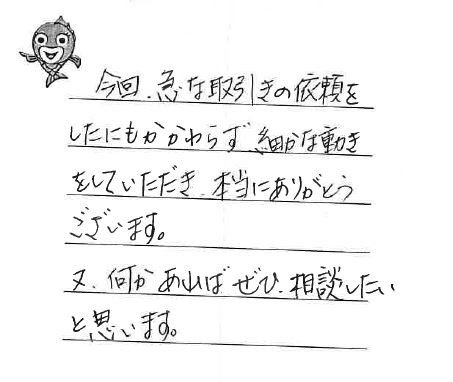 今回、急な取引きの依頼を
したにもかかわらず、細かな動き
をしていただき、本当にありがとう
ございます。
又、何かあればぜひ、相談したい
と思います。